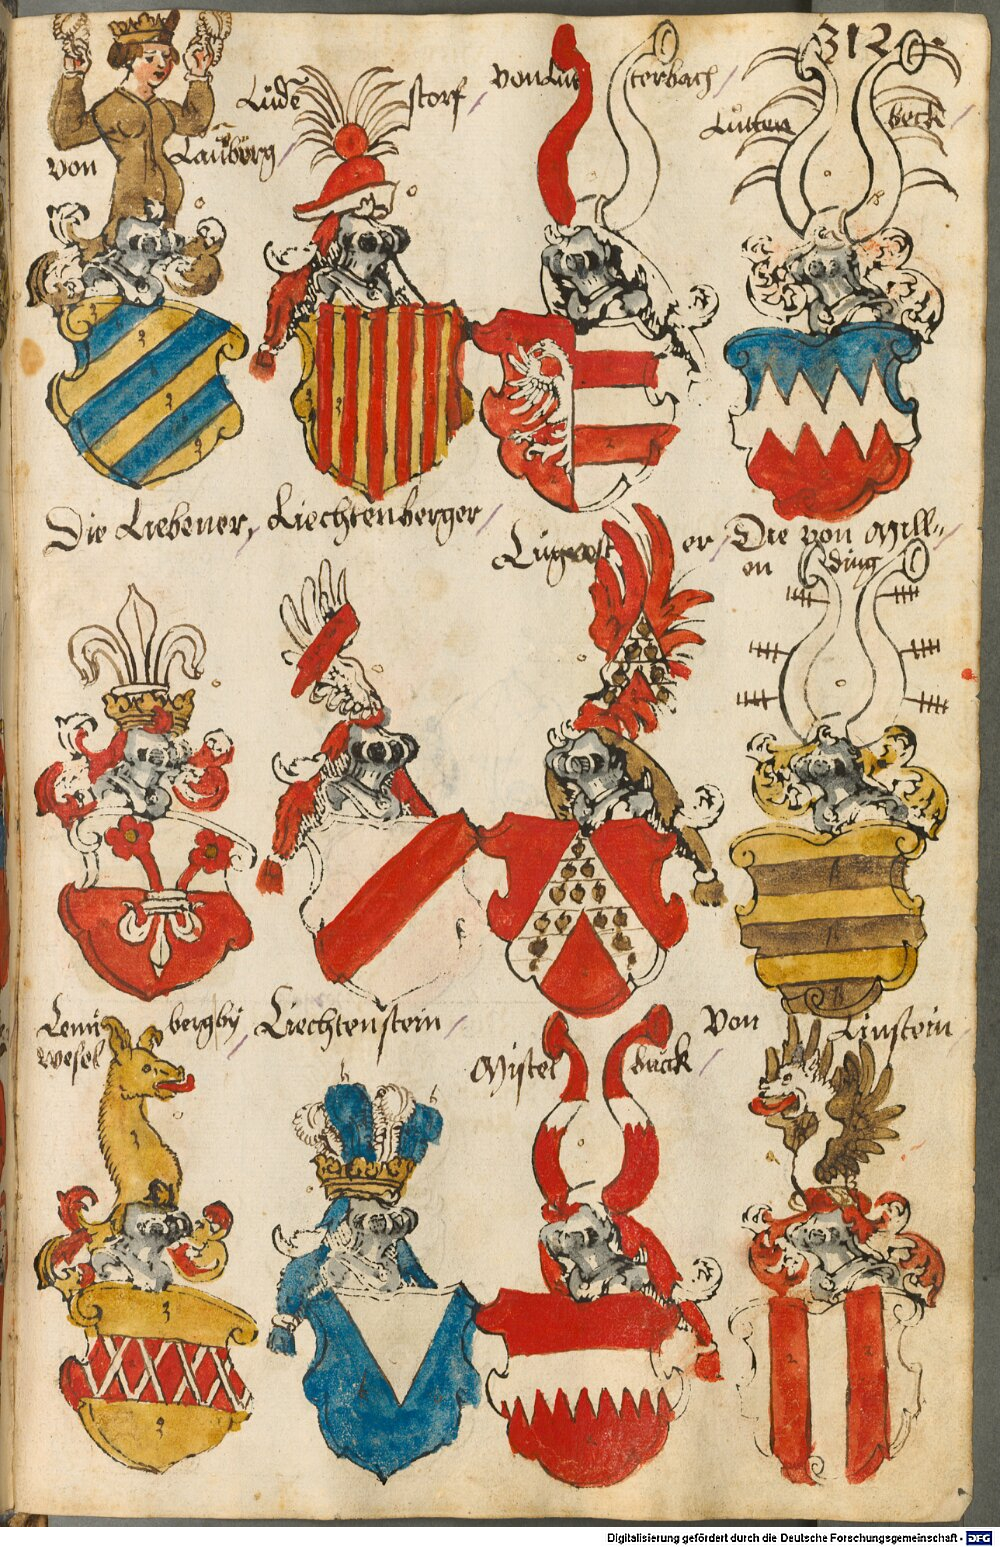 312.
von Lauberg
Lüdestorf
von Lutterbach
Lütten beck
Die Liebener,
Liechtenberger
er
Die von Mill=
en
ding
Lemi bergby
wesel
Liechtenstein
Mistel buck
Von Linstein
Digitalisierung gefördert durch die Deutsche Forschungsgemeinschaft - DFG